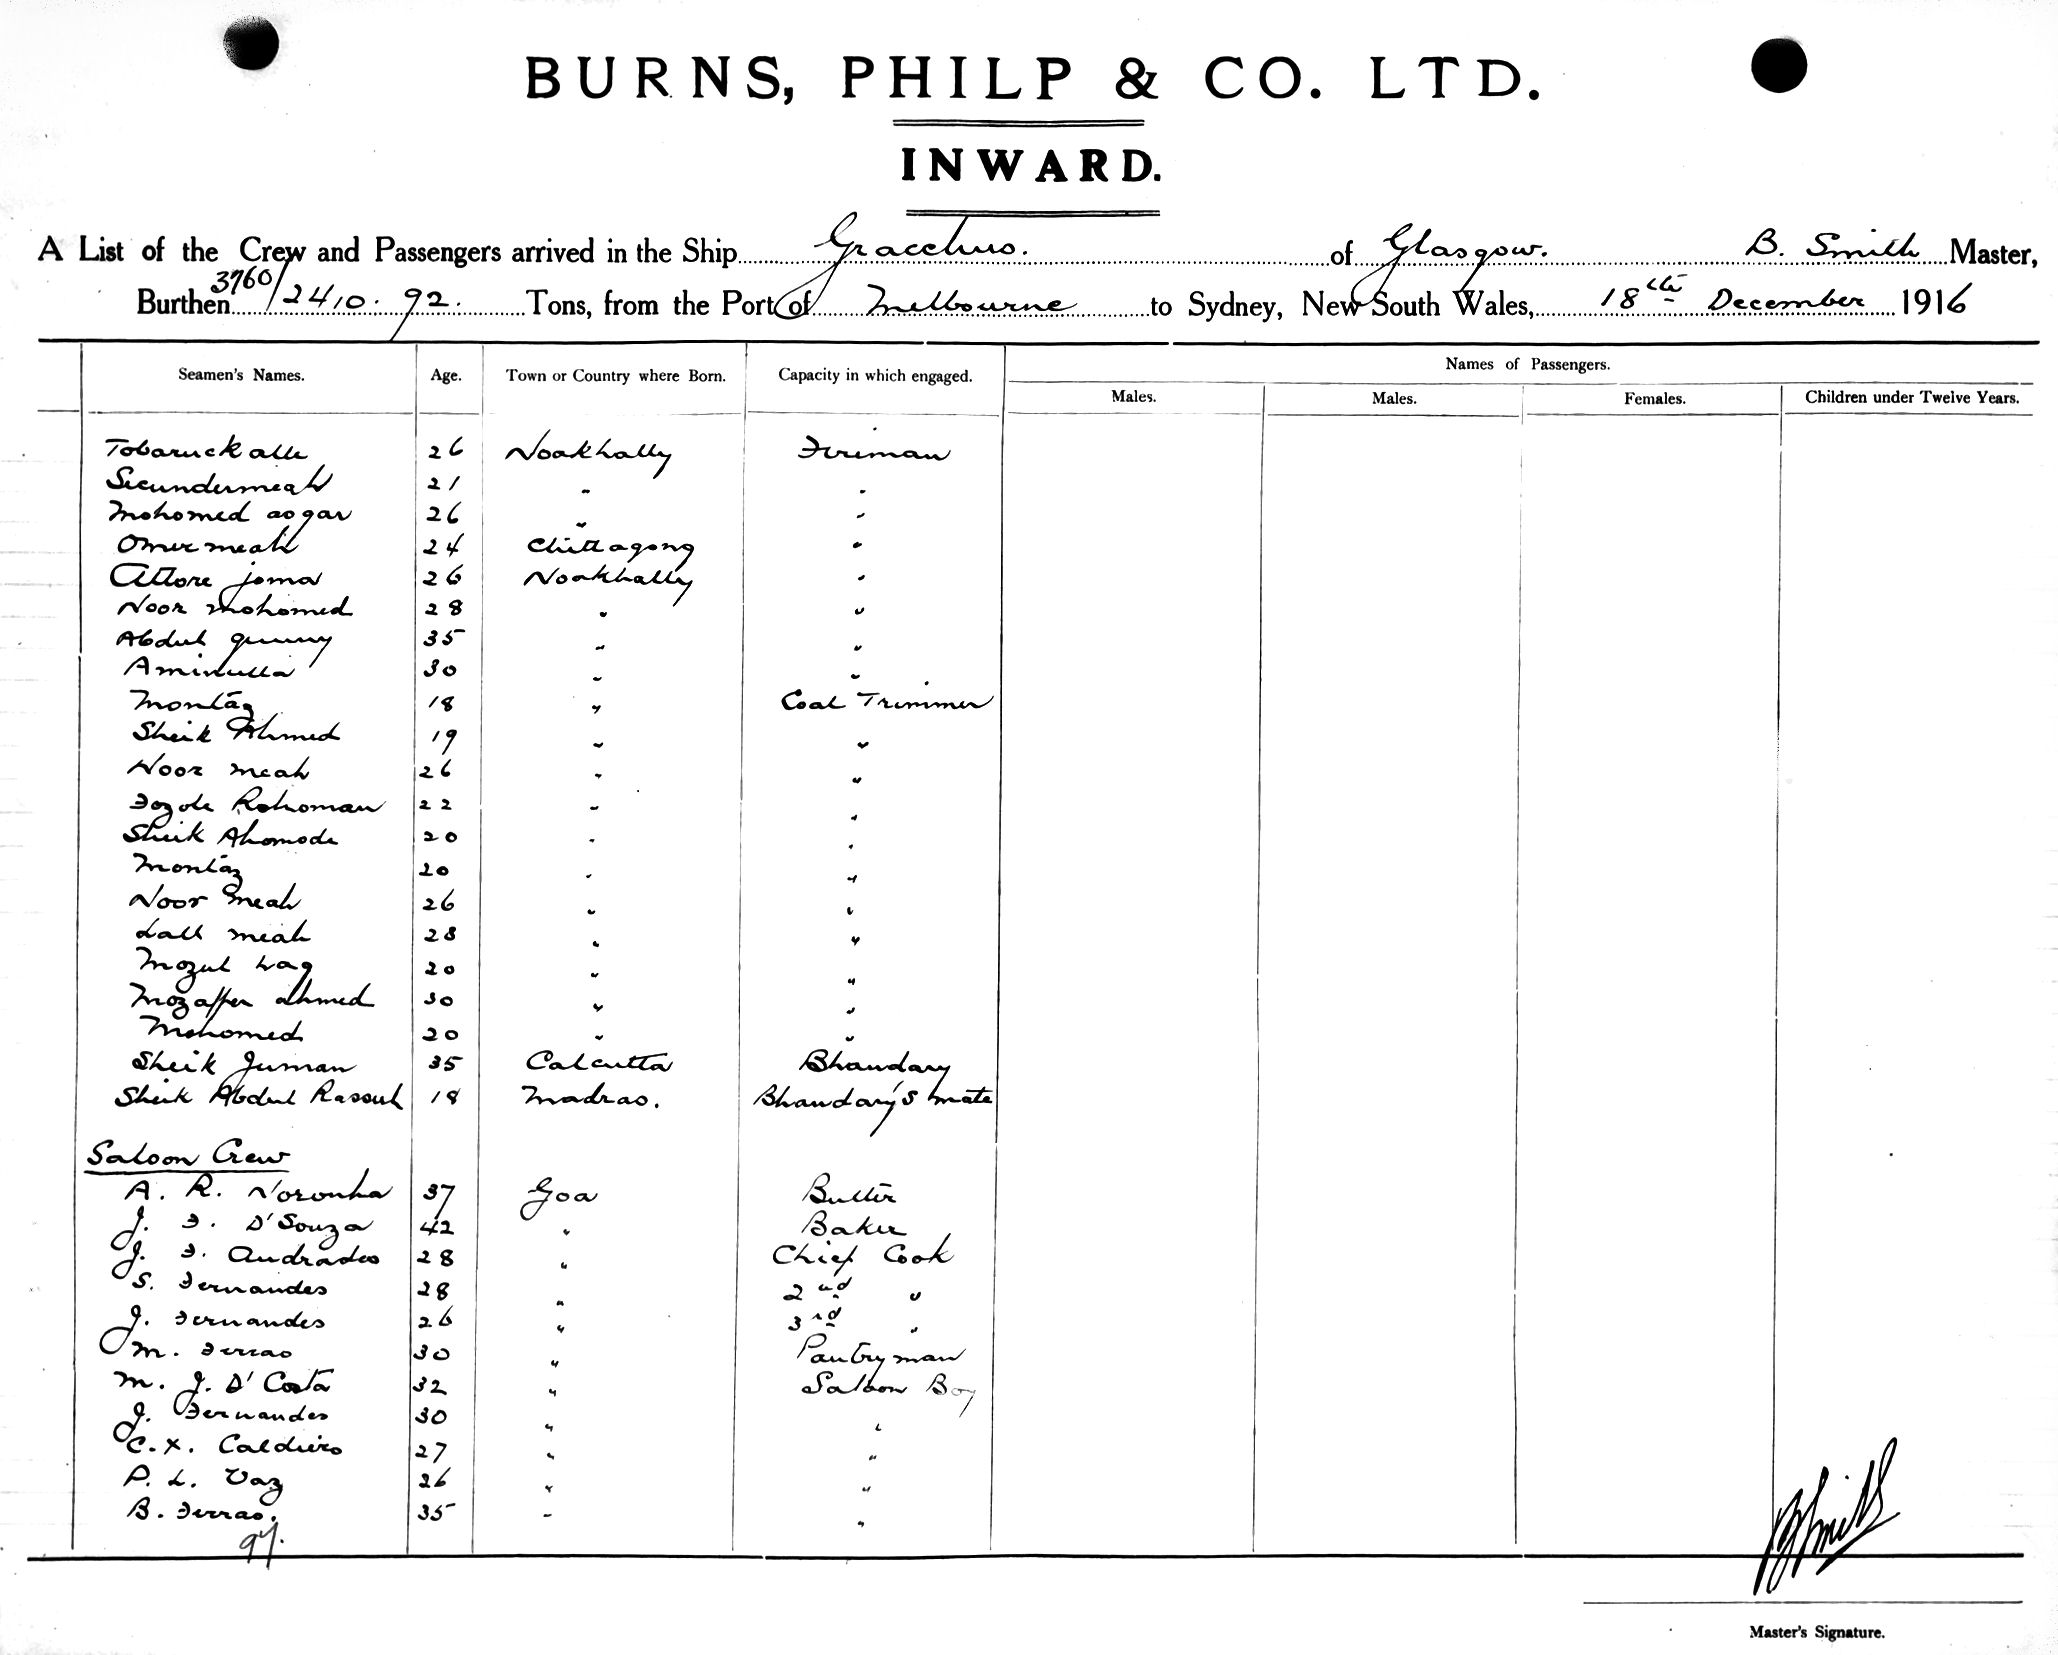 BURNS, PHILP & CO. LTD.
INWARD.
A List of the Crew and Passengers arrived in the Ship Gracchus. of Glasgow. B. Smith Master,
Burthen 3760/2410.92. Tons, from the Port of Melbourne to Sydney, New South Wales, 18th December 1916
Seamen's Names. Age. Town or Country where Born. Capacity in which engaged. Names of Passengers.
Males. Males. Females. Children under Twelve Years.
Tobaruck alli 26 Noakhally Fireman
Secundermeah 21 " "
Mohomed asgar 26 " "
Omer meah 24 Chittagong "
Attore joma 26 Noakhally "
Noor mohomed 28 " "
Abdul gunny 35 " "
Aminulla 30 " "
Montaz 18 " Coal Trimmer
Sheik Ahmed 19 " "
Noor meah 26 " "
Fozole Rohoman 22 " "
Sheik Ahomode 20 " "
Montaz 20 " "
Noor meah 26 " "
Lall meah 28 " "
Mozul hag 20 " "
Mozaffer ahmed 30 " "
Mohomed 20 " "
Sheik Juman 35 Calcutta Bhandary
Sheik Abdul Rassul 18 Madras. Bhandary's mate
Saloon Crew
A. R. Noronha 37 Goa Butler
J. F. D'Souza 42 " Baker
J. F. Andrades 28 " Chief Cook
S. Fernandes 28 " 2nd "
J. Fernandes 26 " 3rd "
M. Ferrao 30 " Pantryman
M. J. D'Costa 32 " Saloon Boy
J. Fernandes 30 " "
C. X. Caldeiro 27 " "
P. L. Vaz 26 " "
B. Ferrao. 35 " "
BSmith
Master's Signature.